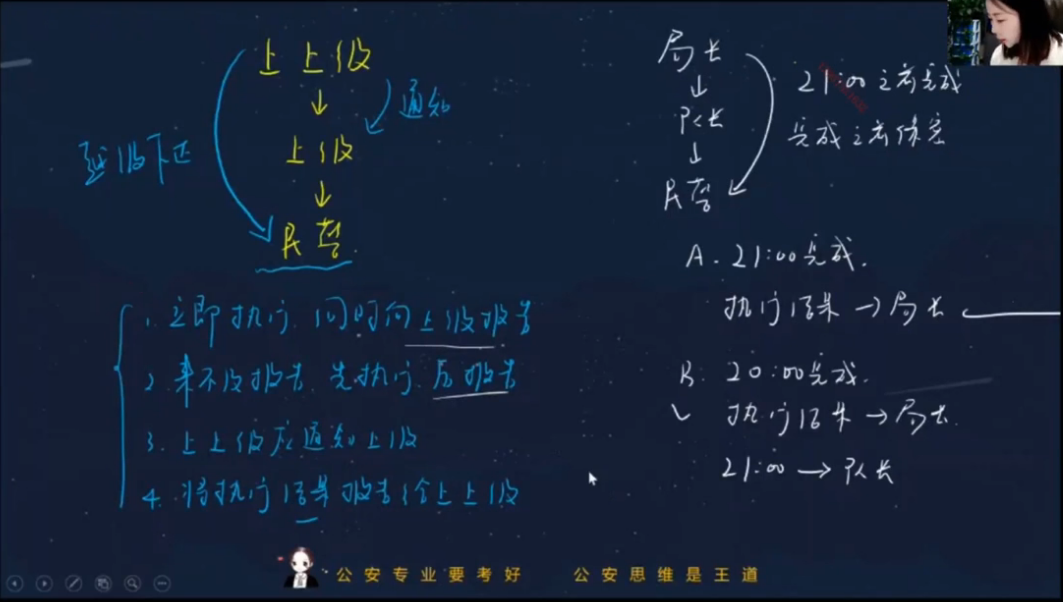 上上级
↓
通知
上级
越级下达
↓
民警
1. 立即执行, 同时向上级报告
2. 来不及报告, 先执行, 后报告
3. 上上级应通知上级
4. 将执行结果报告给上上级
局长
↓
队长
↓
民警
21:00之前完成
完成之前保密
A. 21:00完成.
执行结果→局长
B. 20:00完成.
✓ 执行结果→局长.
21:00→队长
公安专业要考好 公安思维是王道